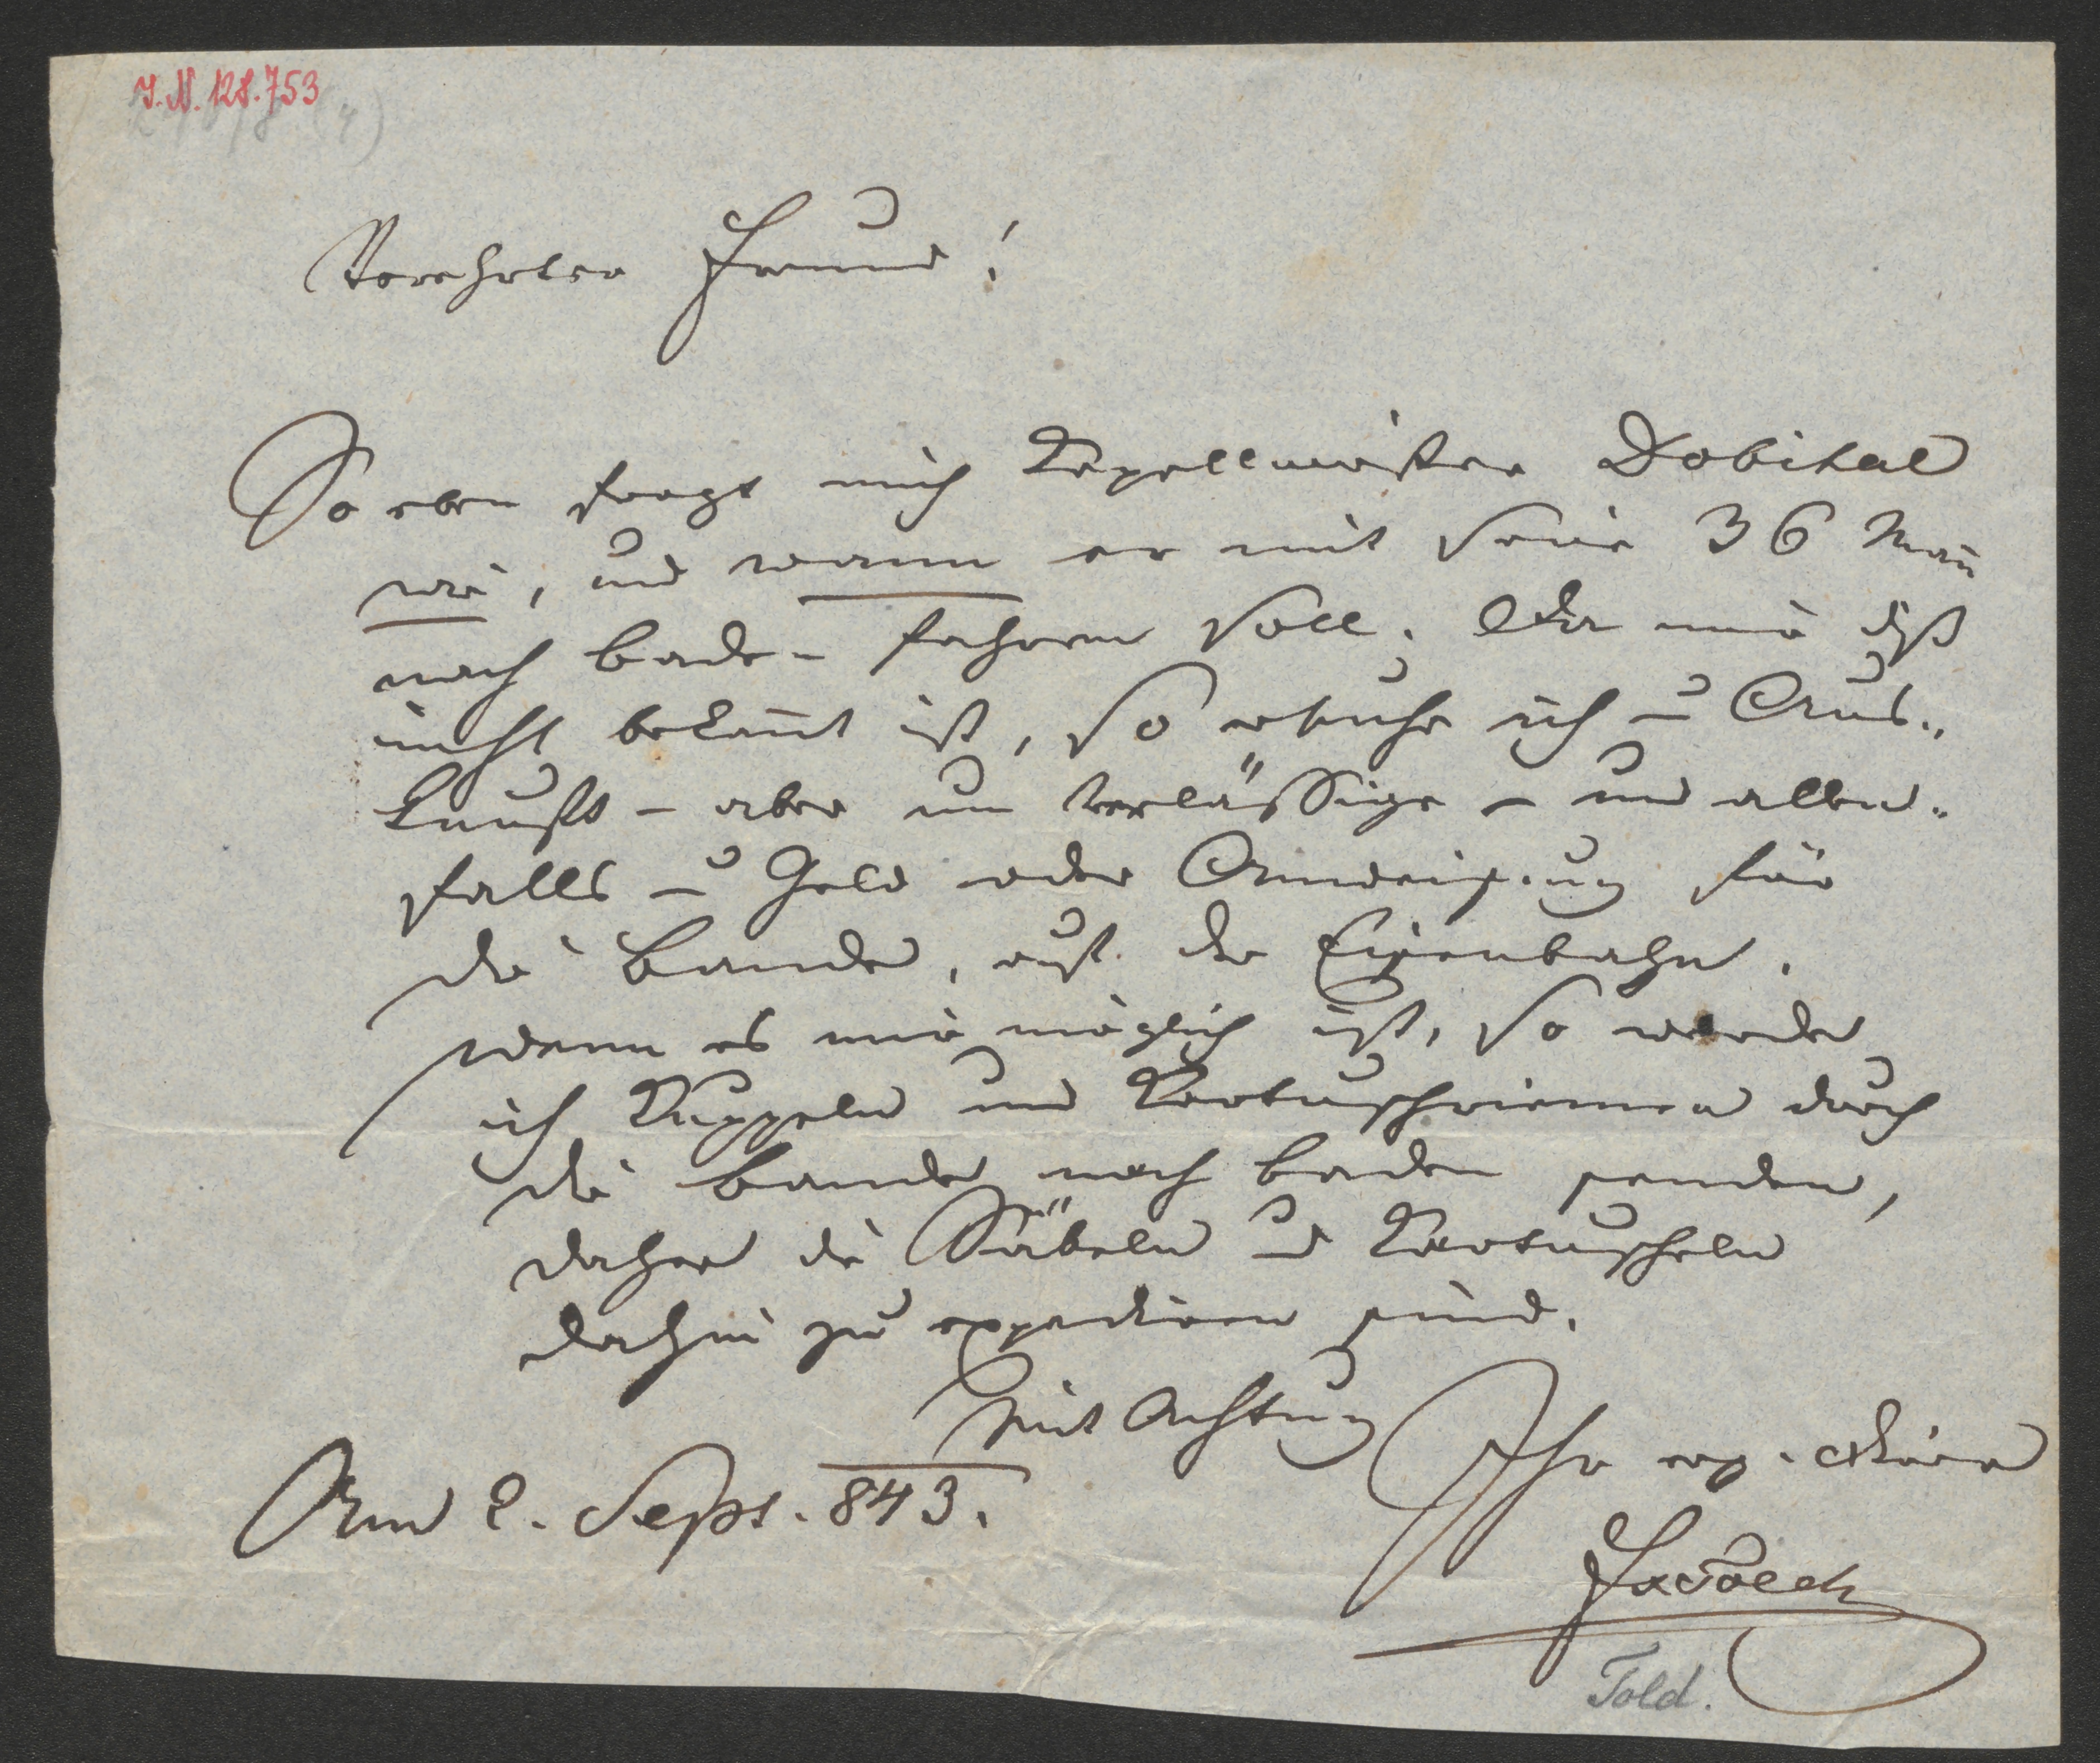 I.N. 128.753
Verehrter Freund!
So eben fragt mich Kapellmeister Dobihal
wie, und wann er mit seine 36 Mañ
nach Baden fahren soll. Da mir diß
nicht bekañt ist, so ersuche ich um Aus„
kunft – aber um verlässige – und allen„
falls um Geld oder Anweisung für
die Bande, auf der Eisenbahn.
Wenn es mir möglich ist, so werde
ich Kuppeln und Kartuschriemen durch
die Bande nach Baden senden,
daher die Säbeln und Kartuscheln
dahin zu expediren sind.
Mit Achtung
Ihr
Am 2. Sept. 843.
FxTold
Told.